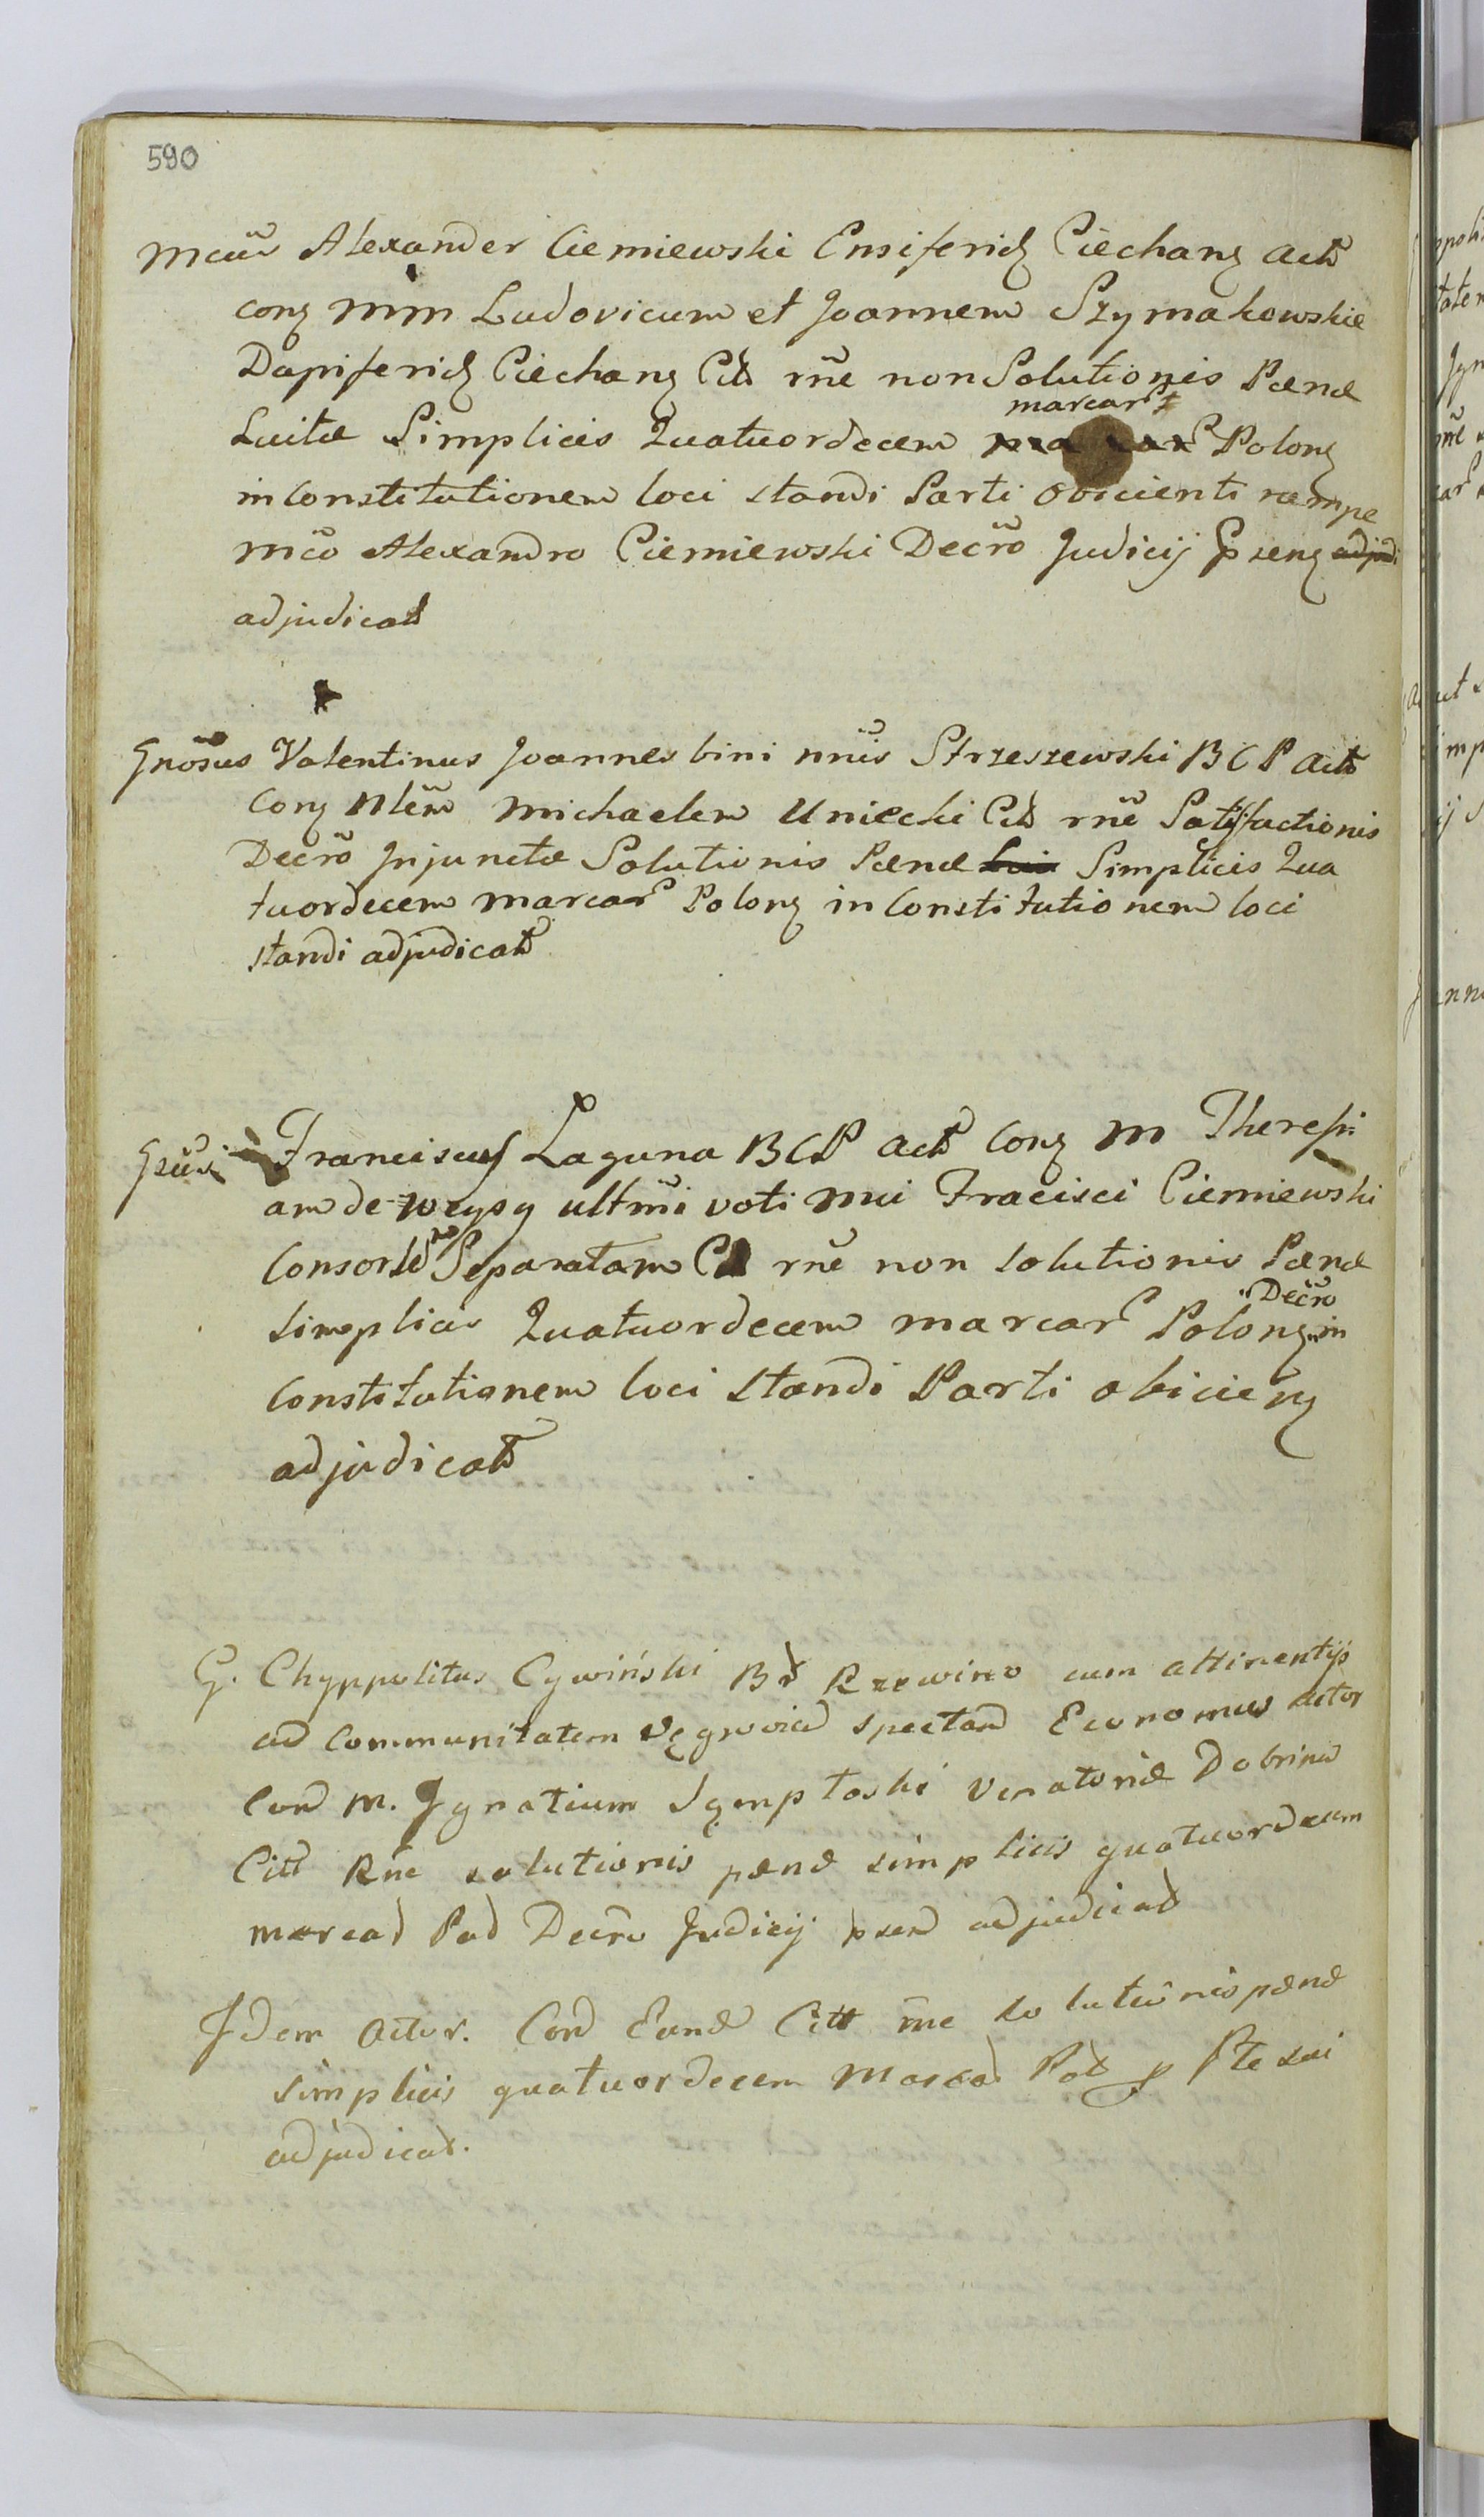 590
Mcus Alexander Ciemiewski Ensiferid Ciechang Actt
cong Mm Ludovicum et Joannem Szymakowskie
Dapiferid Ciechang Citt rñe non Solutionis Pænæ
marcar
Luitæ Simplicis Quatuordecem Polong
in Constitutionem loci standi Parti obicienti nempe
Mco Alexandro Ciemiewski Decro Judicij Pseng adjudi
adjudicatt
Gnosus Valentinus Joannes bini nnis Strzeszewski B C P Actt
Cong Nlem Michaelem Uniecki Citt rñe Satisfactionis
Decro Injunctæ Solutionis Pænæ Lui Simplicis Qua
tuordecem marcar Polong in Constitutionem loci
standi adjudicatt
Franciscus Laguna B C P Actt Cong M Theresi
am de Weysy ultmi voti Mci Fracisci Ciemiewski
Consorte Separatam rñe non solutionis Pænæ
Decro
Simplicis Quatuordecem marcar Polong in
Constitutionem loci standi Parti obicieng
adjudicatt
G. Chyppolitus Cywiński Bd Rzewino cum attinentijs
ad Communitatem spectand Economus Actor
Cond M. Ignatium Sęmptoski Venatoridæ Dobrind
Citt Rñe solutionis pænæ simplicis quatuordecem
marcad Pod Decro Judicij psend adjudicad
Idem Actor. Cond Eand Citt rñe solutionis pænæ
simplicis quatuordecem Marcad Pod p Pte sui
adjudicat.